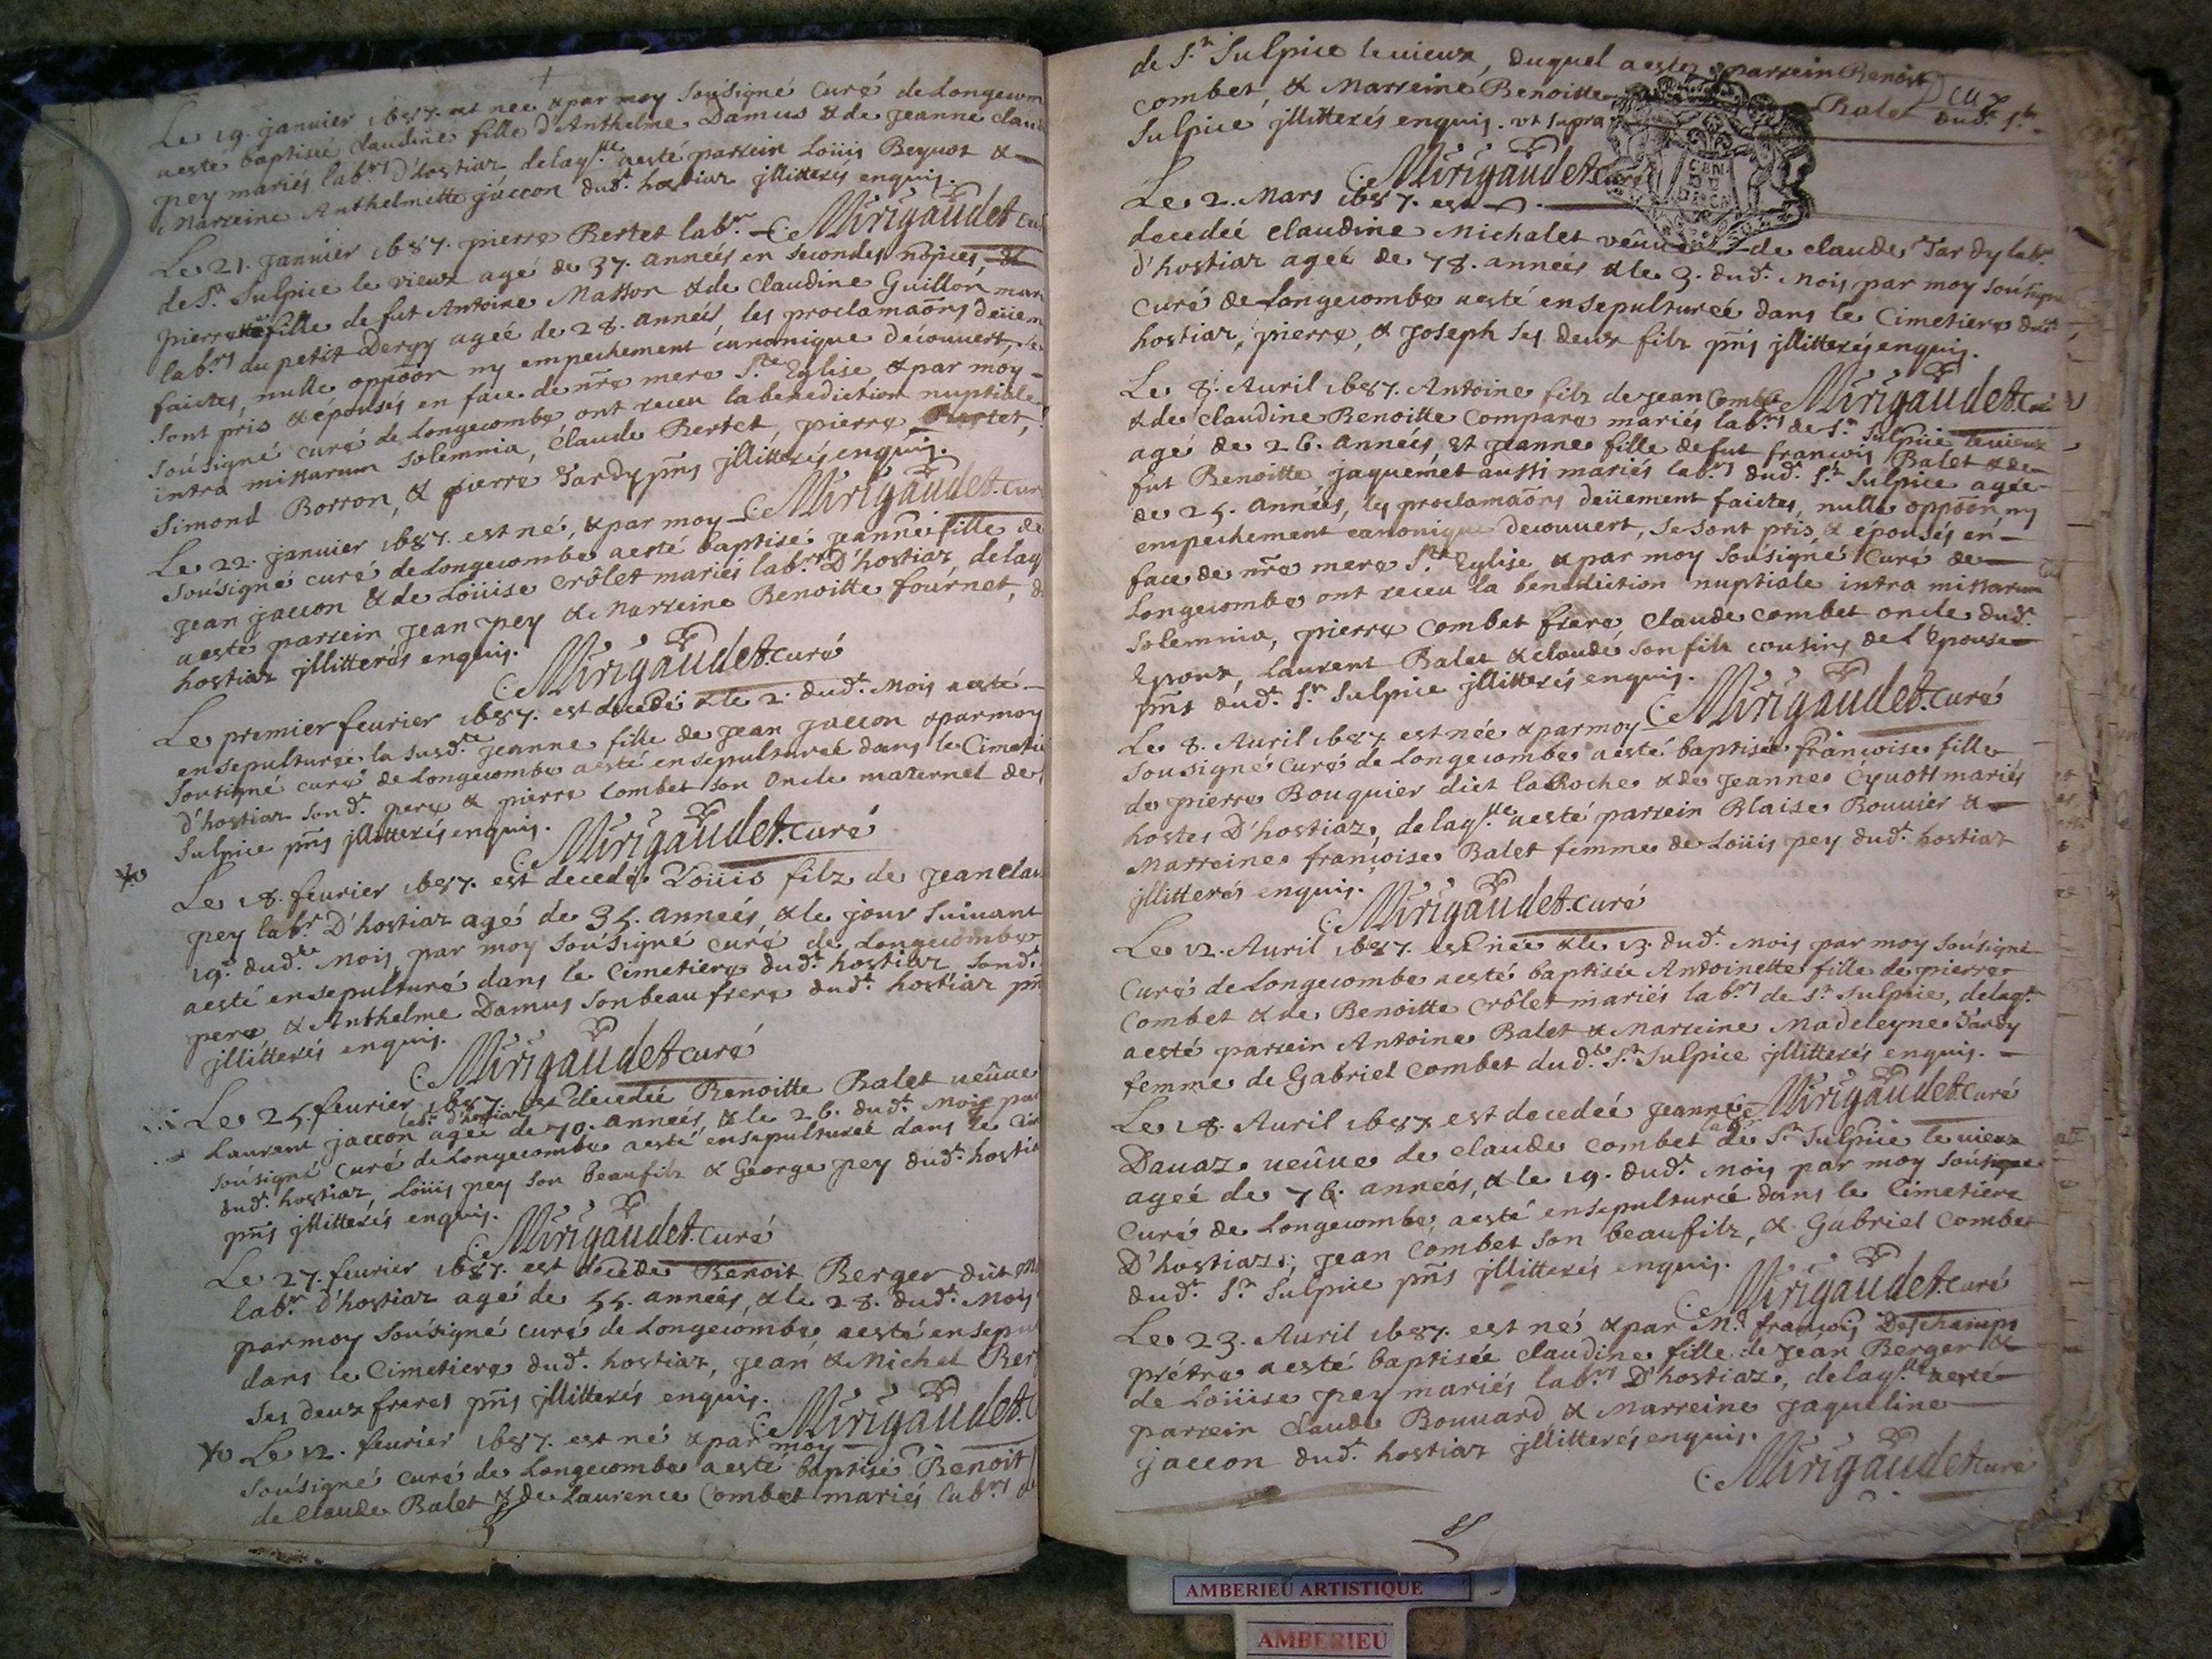 Le 19. januier 1687. est nee &par moy Sousigné Curé de Longecom
aesté baptisée Claudine fille d'Anthelme Damus & de Jeanne Clau
pey mariés lab.rs D'hostiaz, delaq.lle aesté parrein Loüis Beguot &
Marreine Anthelmette jaccon dud.t hostiaz jllitterés enquis.
Mirigaudet Cu
Le 21. januier 1687. pierre Bertet lab.r
de S.t Sulpice le vieux agé de 37. années en secondes nopces, &
pierrette fille de fut Antoine Masson & de Claudine Guillon mar
lab.rs du petit Dergy agéé de 28. années, les proclamaõns deüem
faictes, nulle oppoõn ny empechement canonique decouuert, se
sont pris & épousés en face de nr̃e mere S.te Eglise & par moy
sousigné curé de Longecombe ont receu la benediction nuptiale
intra missarum solemnia, Claude Bertet, pierre Bertet,
Simond Borron, & pierre Tardy pn̄s jllitterés enquis.
Mirigaudet Cur
Le 22. januier 1687. est né, & par moy
sousigné curé de Longecombe aesté baptisé jeanne fille de
jean jaccon & de Loüise Crôlet mariés lab.rs D'hostiaz, delaq
aesté parrein jean pey & Marreine Benoitte fournet, d
hostiaz jllitterés enquis.
Mirigaudet curé
Le premier feurier 1687. est decedé & le 2. dud.t Mois aesté
ensepulturée la susd.te jeanne fille de jean jaccon & par moy
Sousigné curé de Longecombe aesté ensepulturée dans le Cimeti
d'hostiaz sond.t pere & pierre Combet son oncle maternel de
Sulpice pn̄s jllitterés enquis.
Mirigaudet curé
Le 18. feurier 1687. est decedé Loüis filz de jean clau
pey lab.r D'hostiaz agé de 35. années, & le jour suiuant
19.e dud.t Mois par moy sousigné curé de Longecombe
aesté ensepulturé dans le Cimetiere dud.t hostiaz sond.t
pere & Anthelme Damus son beaufrere dud.t hostiaz pn̄
jllitterés enquis.
Mirigaudet curé
Le 25. feurier 1687. est decedée Benoitte Balet ueüue
lab.r d'hostiaz
Laurent jaccon agée de 70. années, & le 26. dud.t Mois par
sousigné Curé de Longecombe aesté ensepulturée dans le Cim
dud.t hostiaz, Loüis pey son beaufilz & George pey dud.t hostia
pn̄s jllitterés enquis.
Mirigaudet curé
Le 27. feurier 1687. est decedé Benoit Berger dit M
lab.r D'hostiaz agé de 55. années, & le 28. dud.t Mois
par moy sousigné curé de Longecombe aesté ensepul
dans le Cimetiere dud.t hostiaz, jean & Michel Ber
Ses deux freres pn̄s jllitterés enquis.
Mirigaudet. C
Le 12. feurier 1687. est né & par moy
sousigné curé de Longecombe aesté baptisé Benoit
de Claude Balet & de Laurence Combet mariés lab.rs d
de S.t Sulpice le uieux, duquel aesté parrein Benoit
Combet, & Marreine Benoitte Balet dud.t S.t
Sulpice jllitterés enquis. vt supra
Mirigaudet curé
GEN DV DIION
Le 2. Mars 1687. est
decedéé Claudine Michalet veüue de Claude Tardy lab.r
d'hostiaz agéé de 78. années & le 3. dud.t Mois par moy sousigné
Curé de Longecombe aesté ensepulturéé dans le Cimetiere dud.t
hostiaz, pierre, & Joseph ses deux filz pn̄s jllitterés enquis.
Mirigaudet. Cu
Le 8. Auril 1687. Antoine filz de jean Combet
& de Claudine Benoitte Compara mariés lab.rs de S.t Sulpice le uieux
agé de 26. années, et jeanne fille de fut françois Balet & de
fut Benoitte jaquemet aussi mariés lab.rs dud.t S.t Sulpice agée
de 25. années, les proclamaõns deüement faictes, nulle oppoõn ny
empechement canonique decouuert, se sont pris, & épousés en
face de nr̃e mere S.te Eglise & par moy sousigné Curé de
Longecombe ont receu la benediction nuptiale intra missarum
solemnia, pierre Combet frere Claude Combet oncle dud.t
Epoux, Laurent Balet & claude son filz cousins de l'Epouse
pn̄s dud.t S.t Sulpice jllitterés enquis.
Mirigaudet. curé
Le 8. Auril 1687. est née & par moy
sousigné Curé de Longecombe aesté baptisée françoise fille
de pierre Bouquier dict la Roche & de jeanne Cyuott mariés
hostes D'hostiaz, delaq.lle aesté parrein Blaise Bouuier &
Marreine françoise Balet femme de Loüis pey dud.t hostiaz
jllitterés enquis.
Mirigaudet. curé
Le 12. Auril 1687. est née & le 13. dud.t Mois par moy sousigné
Curé de Longecombe aesté baptisée Antoinette fille de pierre
Combet & de Benoitte Crôlet mariés lab.rs de S.t Sulpice, delaq.lle
aesté parrein Antoine Balet & Marreine Madeleyne Tardy
femme de Gabriel Combet dud.t S.t Sulpice jllitterés enquis.
Mirigaudet curé
Le 18. Auril 1687. est decedéé jeanne
Dauaz ueüue de Claude Combet de S.t Sulpice le uieux
agéé de 76. années, & le 19. dud.t Mois par moy sousigné
Curé de Longecombe, aesté ensepulturéé dans le Cimetiere
D'hostiaz; jean Combet son beaufilz, & Gabriel Combet
dud.t S.t Sulpice pn̄s jllitterés enquis.
Mirigaudet curé
Le 23. Auril 1687. est né & par M.re françois Deschamps
prétre aesté baptisée claudine fille de jean Berger &
de Loüise pey mariés lab.rs D'hostiaz, delaq.lle aesté
parrein Claude Bouuard & Marreine jaqueline
jaccon dud.t hostiaz jllitterés enquis.
Mirigaudet curé
AMBERIEU ARTISTIQUE
AMBERIEU